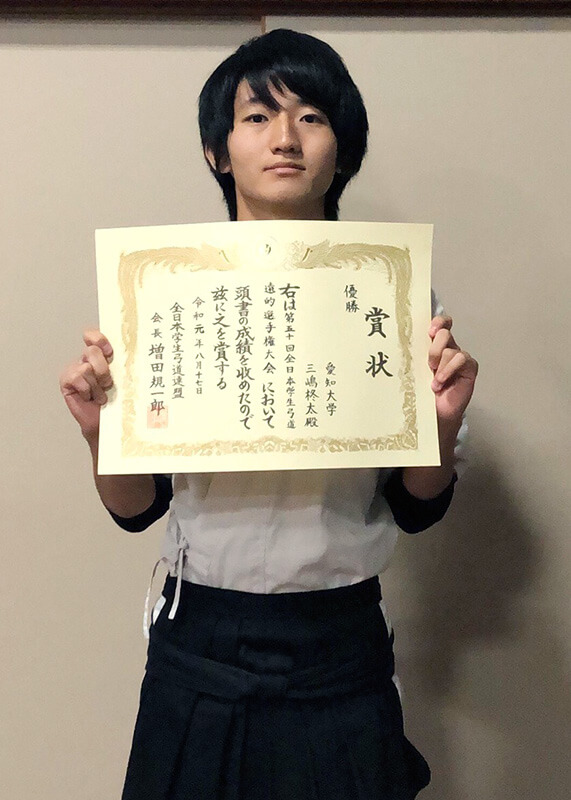 賞状
優勝
愛知大学
三嶋柊太殿
右は第五十回全日本学生弓道
遠的選手権大会 において
頭書の成績を收めたので
茲に之を賞する
令和元年八月十七日
全日本学生弓道連盟
会長 増田規一郎